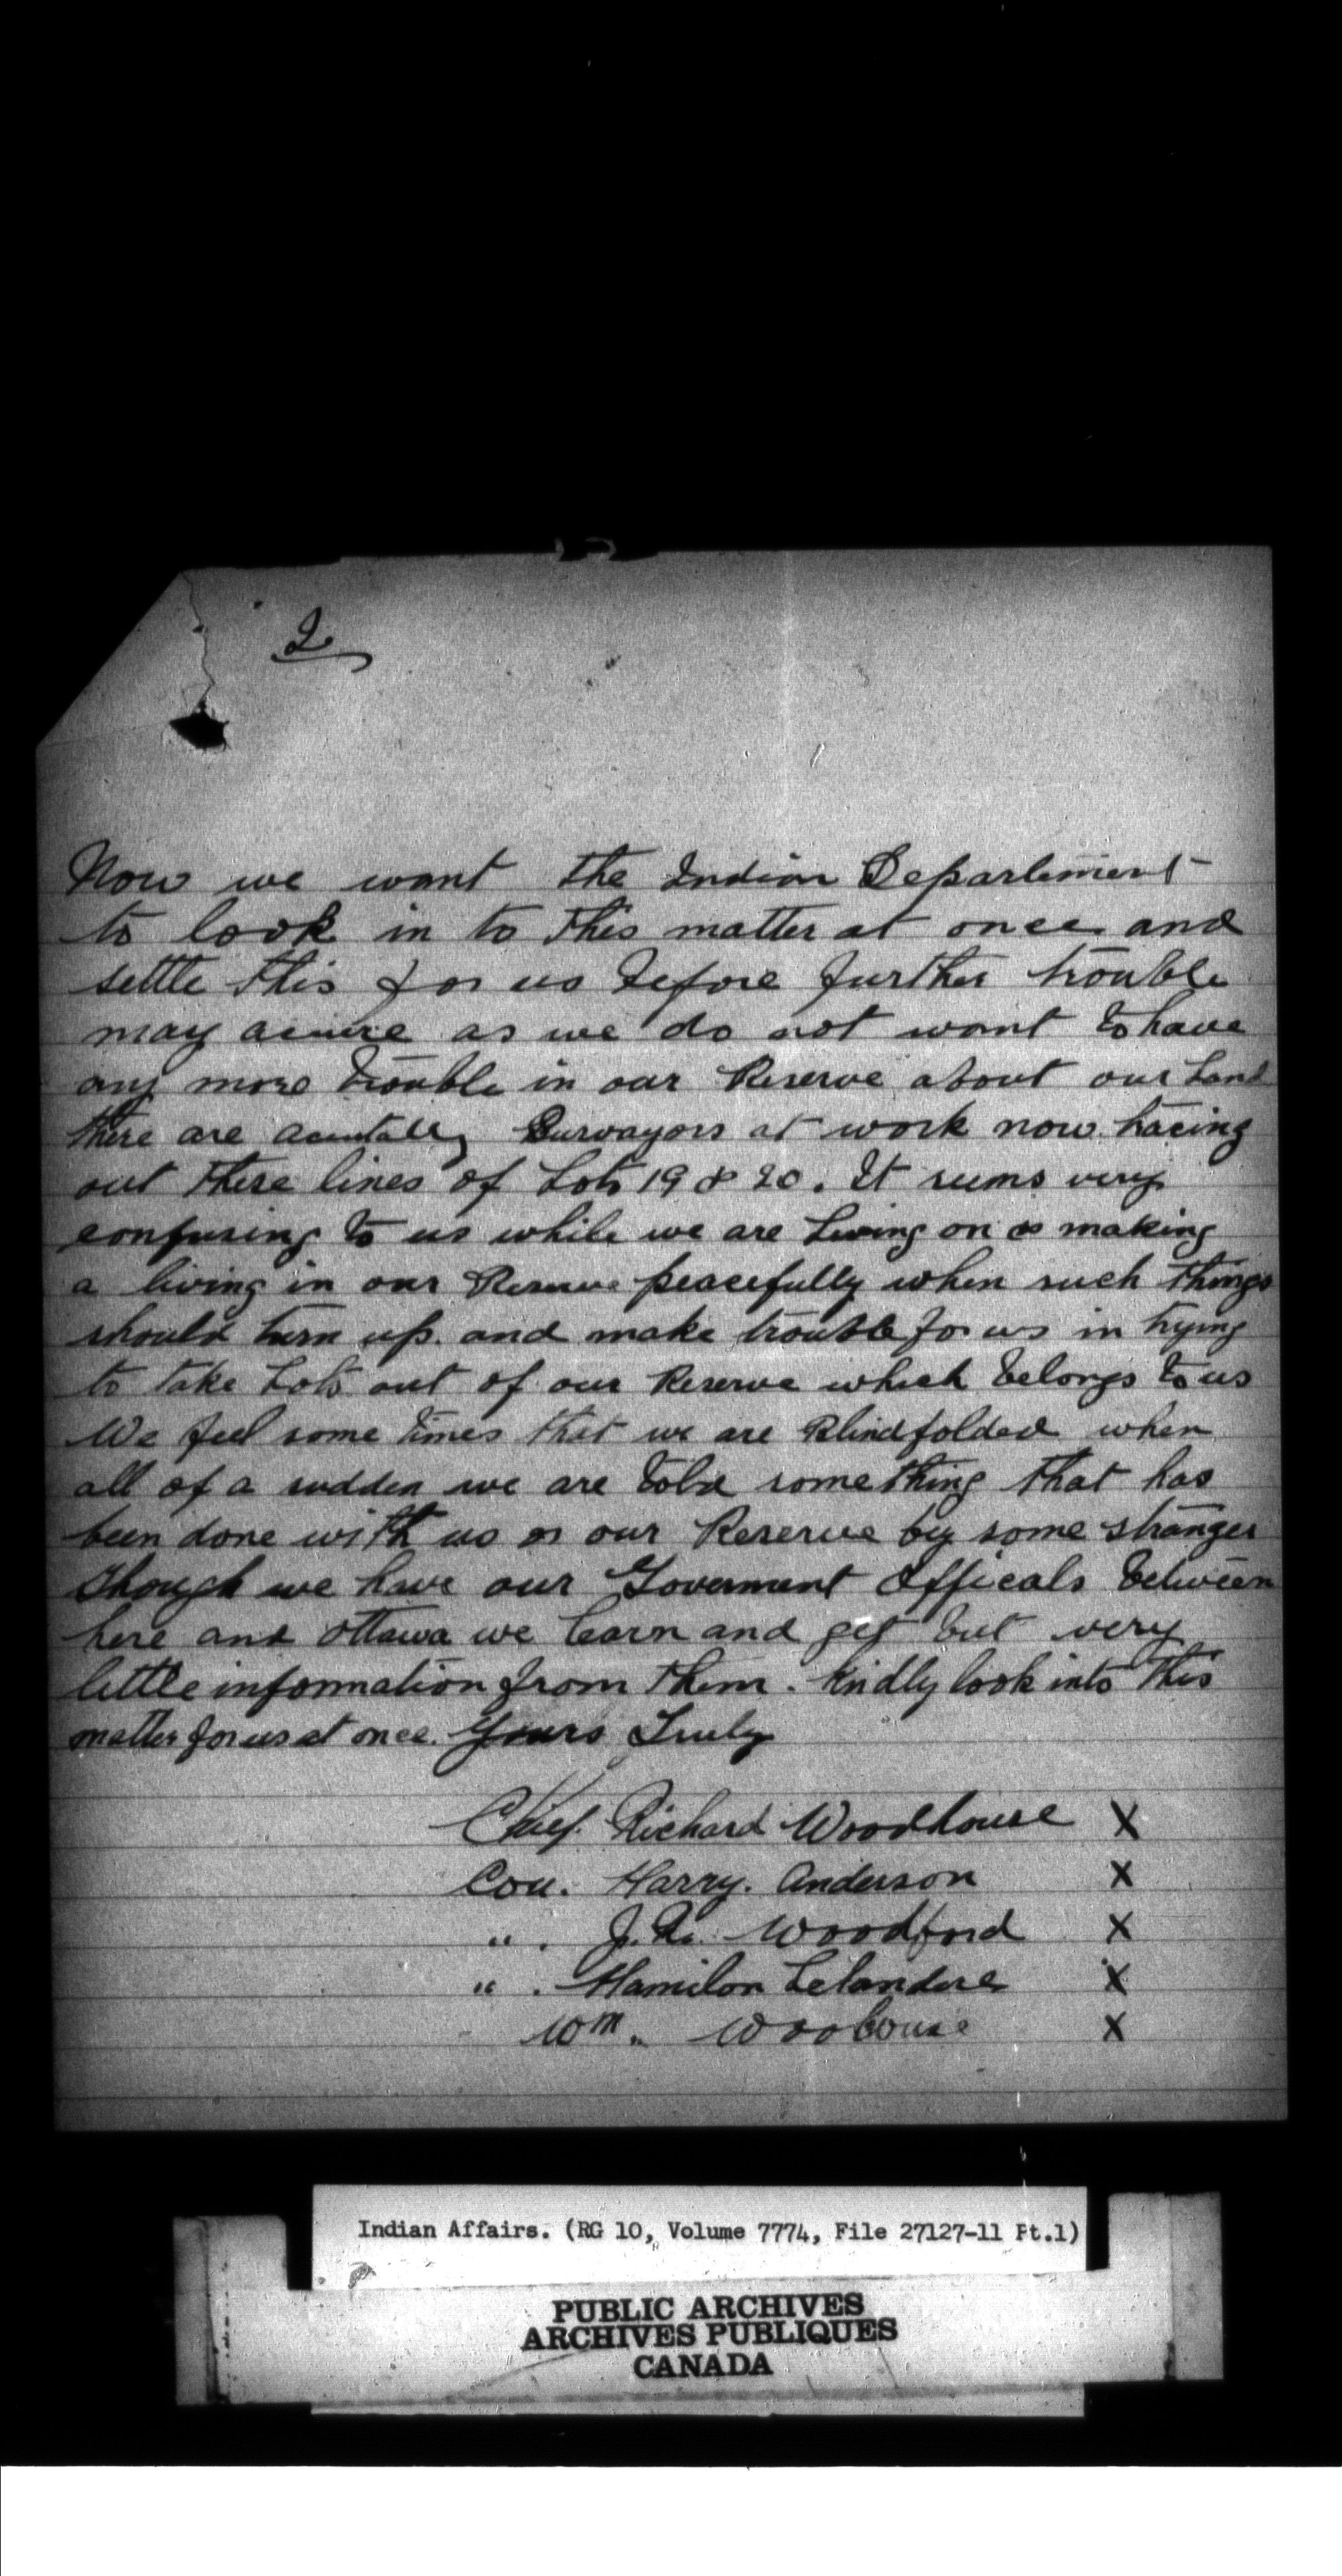 2
Now we want the Indian Department
to look in to this matter at once and
settle this for us before further trouble
may accure as we do not want to have
any more trouble in our Reserve about our Land
there are Surwayors at work now tracing
out there lines of Lots 19 & 20. It seems very
confusing to us while we are Living on & making
a living in our Reserve peacefully when such things
should turn up. and make trouble for us in trying
to take Lots out of our Reserve which belongs to us
We feel some times that we are Blindfolded when
all of a sudden we are told something that has
been done with us or our Reserve by some stranger
though we have our Goverment Officals between
here and Ottawa we learn and get but very
little information from them. Kindly look into this
matter for us at once. Yours Truly
Chief. Richard Woodhouse X
Cou. Harry. Anderson X
". Woodford X
". Hamilon X
Wm. X
Indian Affairs. (RG 10, Volume 7774, File 27127-11 Pt.1)
PUBLIC ARCHIVES
ARCHIVES PUBLIQUES
CANADA